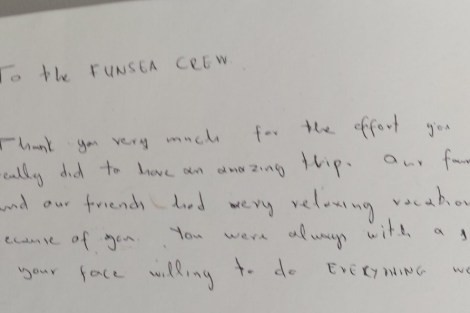 To the FUNSEA CREW.
Thank you very much for the effort you
really did to have an amazing trip. Our fam
and our friends had very relaxing vacation
ecause of you. You were always with a s
your face willing to do EVERYTHING we